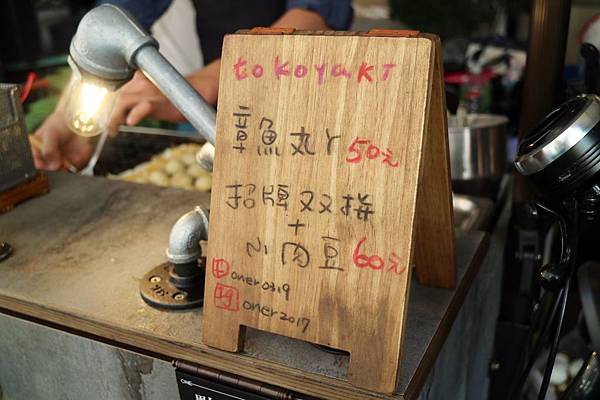 tokoyaKI
章魚丸ㄚ 50元
招牌双拼
+
小肉豆 60元
oner0319
IG oner2017